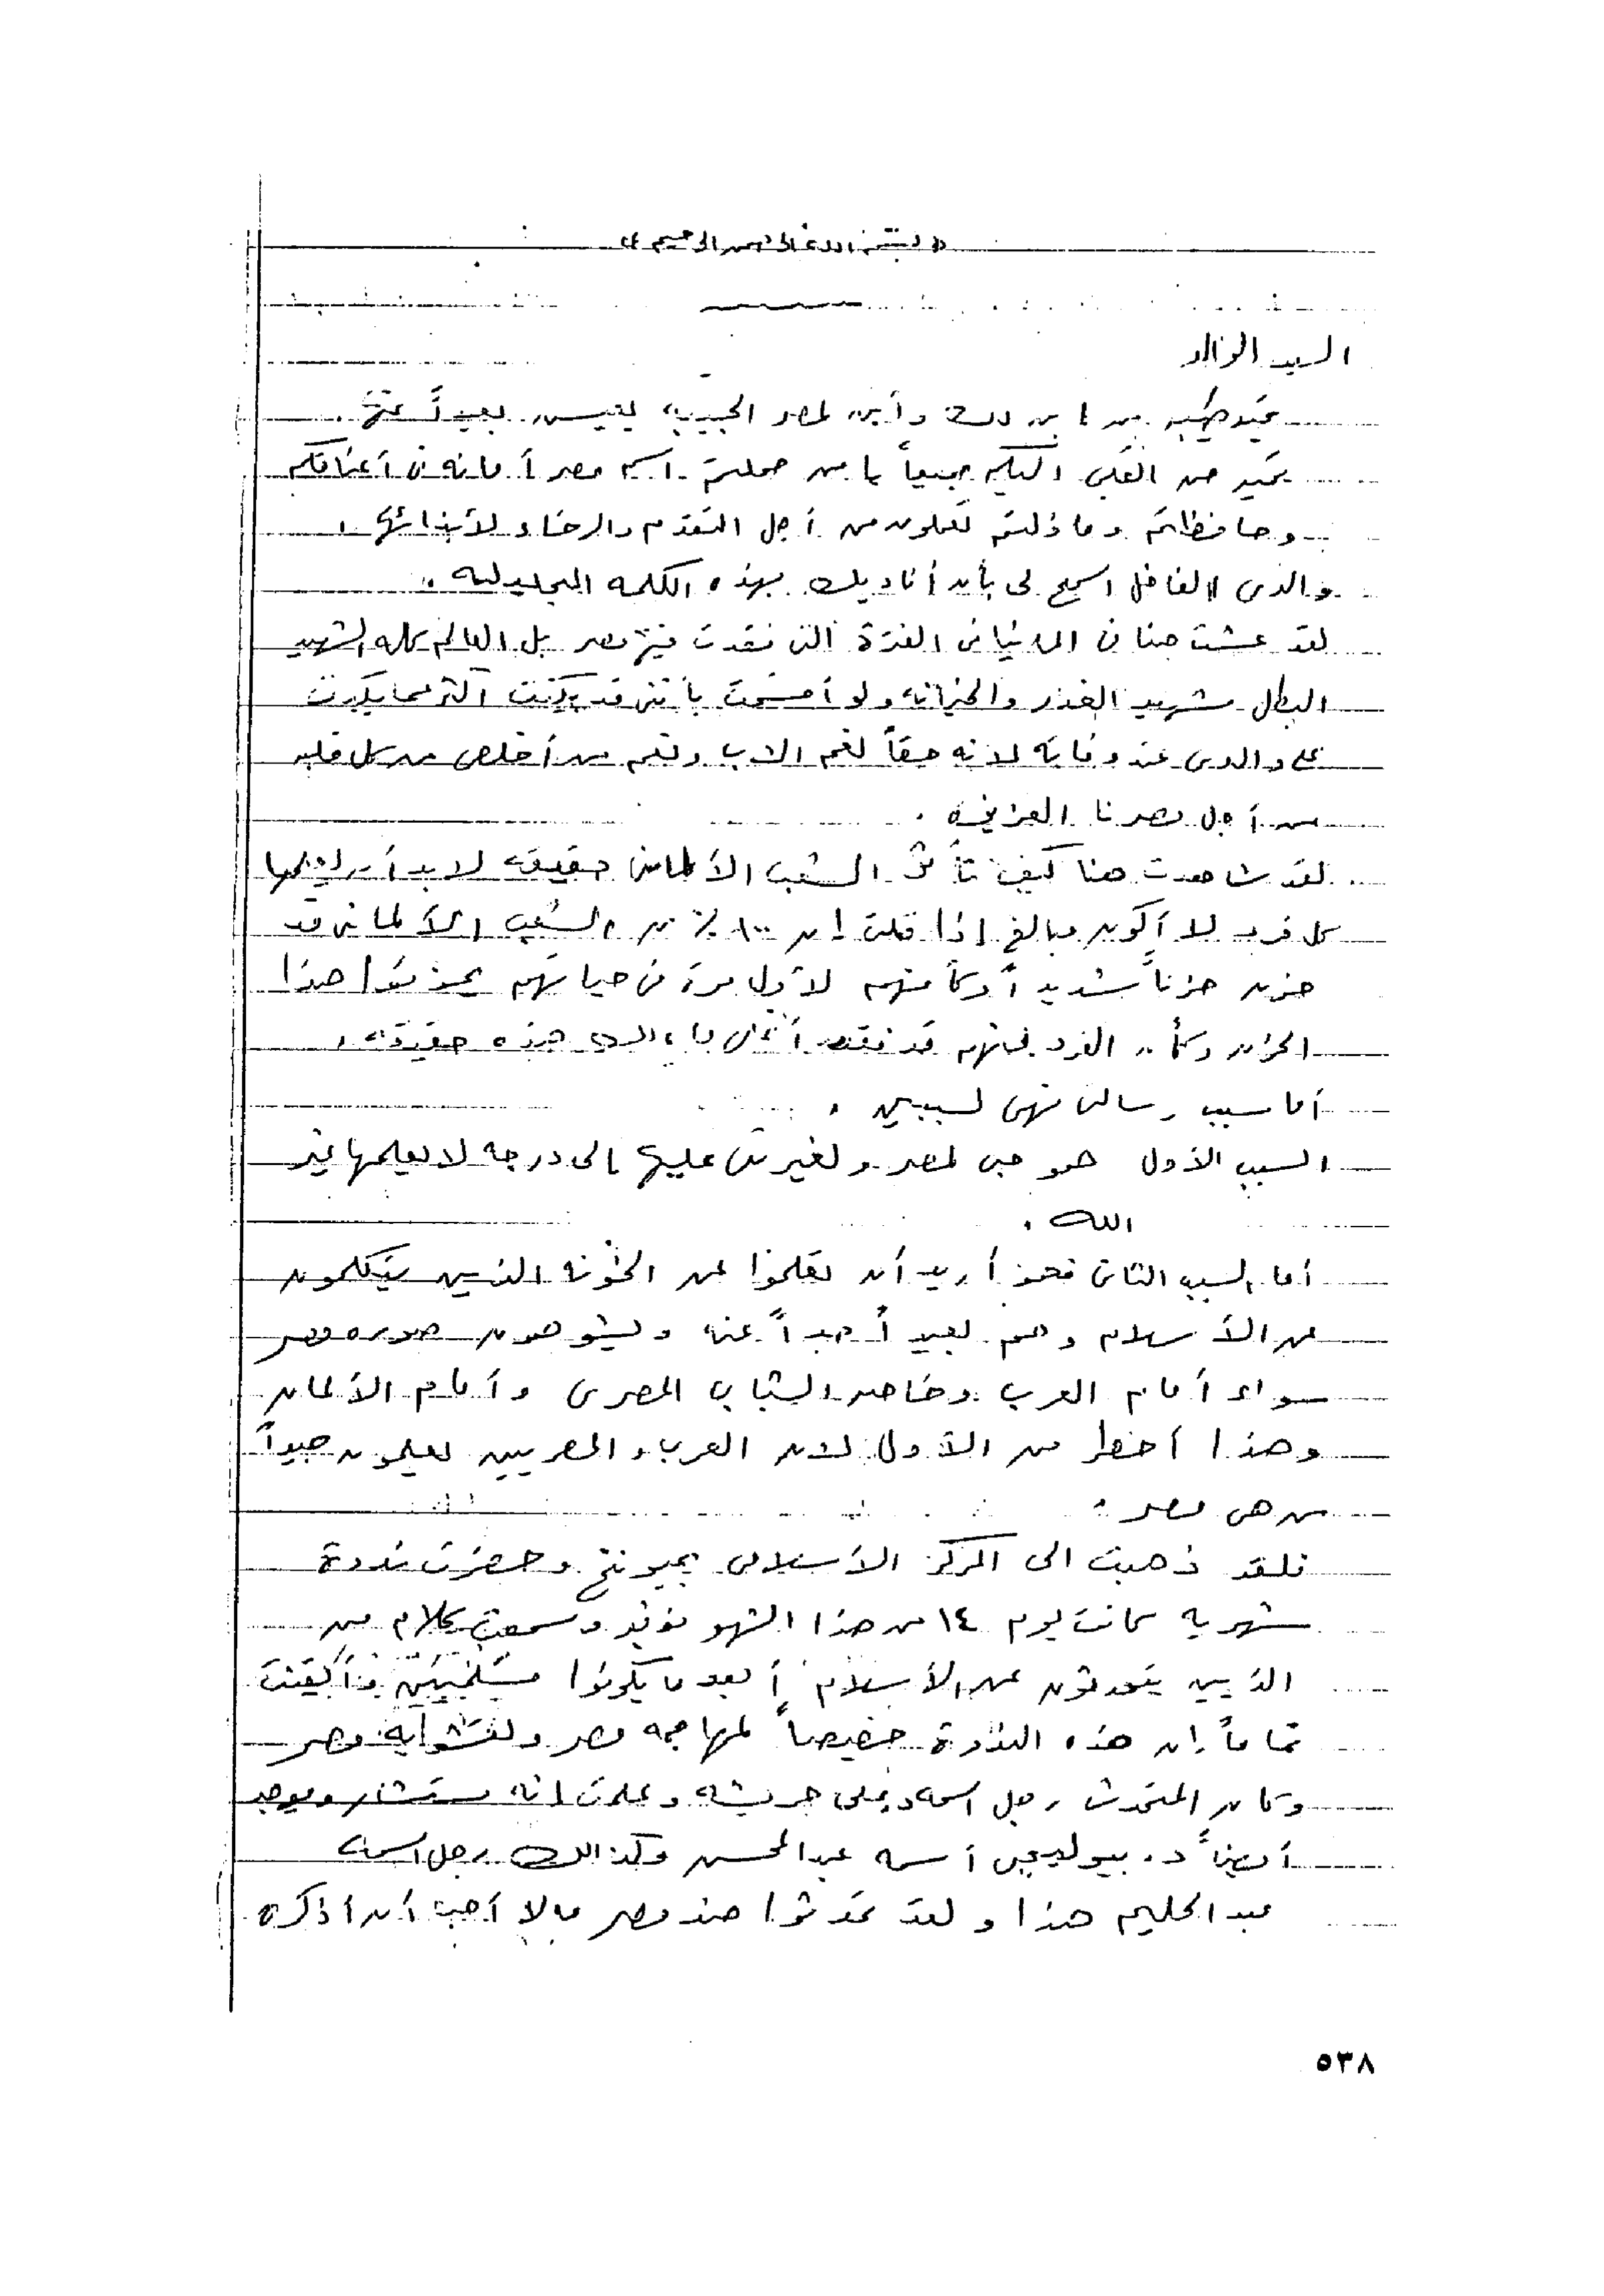 « بسم الله الرحمن الرحيم »
السيد الوالد
تحيه طيبه من ابن لك وأبن لمصر الحبيبه يعيش بعيداً عنها .
تحيه من القلب اليكم جميعاً يا من حملتم اسم مصر أمانه فى أعناقكم
وحافظتم وما زلتم تعملون من أجل التقدم والرخاء لأبنائها .
والدى الفاضل اسمح لى بأن أناديك بهذه الكلمه
لقد عشت هنا فى المانيا فى الفترة التى فقدت فيها مصر بل العالم كله الشهيد
البطل شهيد الغدر والخيانه ولو أقسمت بأننى قد بكيت أكثر مما بكيت
على والدى عند وفاته لانه حقاً لنعم الاب ونعم من أخلص من كل قلبه
من أجل مصرنا العزيزه .
لقد شاهدت هنا كيف تأثر الشعب الألمانى حقيقه لابد أن يعلمها
كل فرد لا أكون مبالغ إذا قلت إن ١٠٠٪ من الشعب الألمانى قد
حزن حزناً شديداً وكأنهم لأول مرة فى حياتهم يحزنوا هذا
الحزن وكأن الفرد منهم قد فقد أغلى ما هذه حقيقه .
أما سبب رسالتى فهى لسببين .
السبب الأول هو حبى لمصر ولغيرتى عليها إلى درجه لا يعلمها غير
الله .
أما السبب الثانى فهو أريد أن تعلموا عن الخونه الذين يتكلمون
عن الأسلام وهم بعيداً جداً عنه ويشوهون صوره مصر
سواء أمام العرب وخاصه الشباب المصرى وأمام الألمان
وهذا أخطر من الأول لان العرب والمصريين يعلمون جيداً
من هى مصر .
فلقد ذهبت الى المركز الأسلامى بميونخ وحضرت ندوة
شهريه كانت يوم ١٤ من هذا الشهر نوفمبر وسمعت كلام من
الذين يتحدثون عن الأسلام أبعد ما يكونوا مسلمين وأيقنت
تماماً إن هذه الندوة خصيصاً لمهاجمه مصر ولتشويه مصر
وكان المتحدث رجل اسمه د. على جريشه وعلمت انه مستشار ويوجد
أيضاً د. بيولوجى أسمه عبد المحسن وكذالك رجل اسمه
عبد الحليم هذا ولقد تحدثوا ضد مصر مالا أحب أن أذكره
٥٣٨